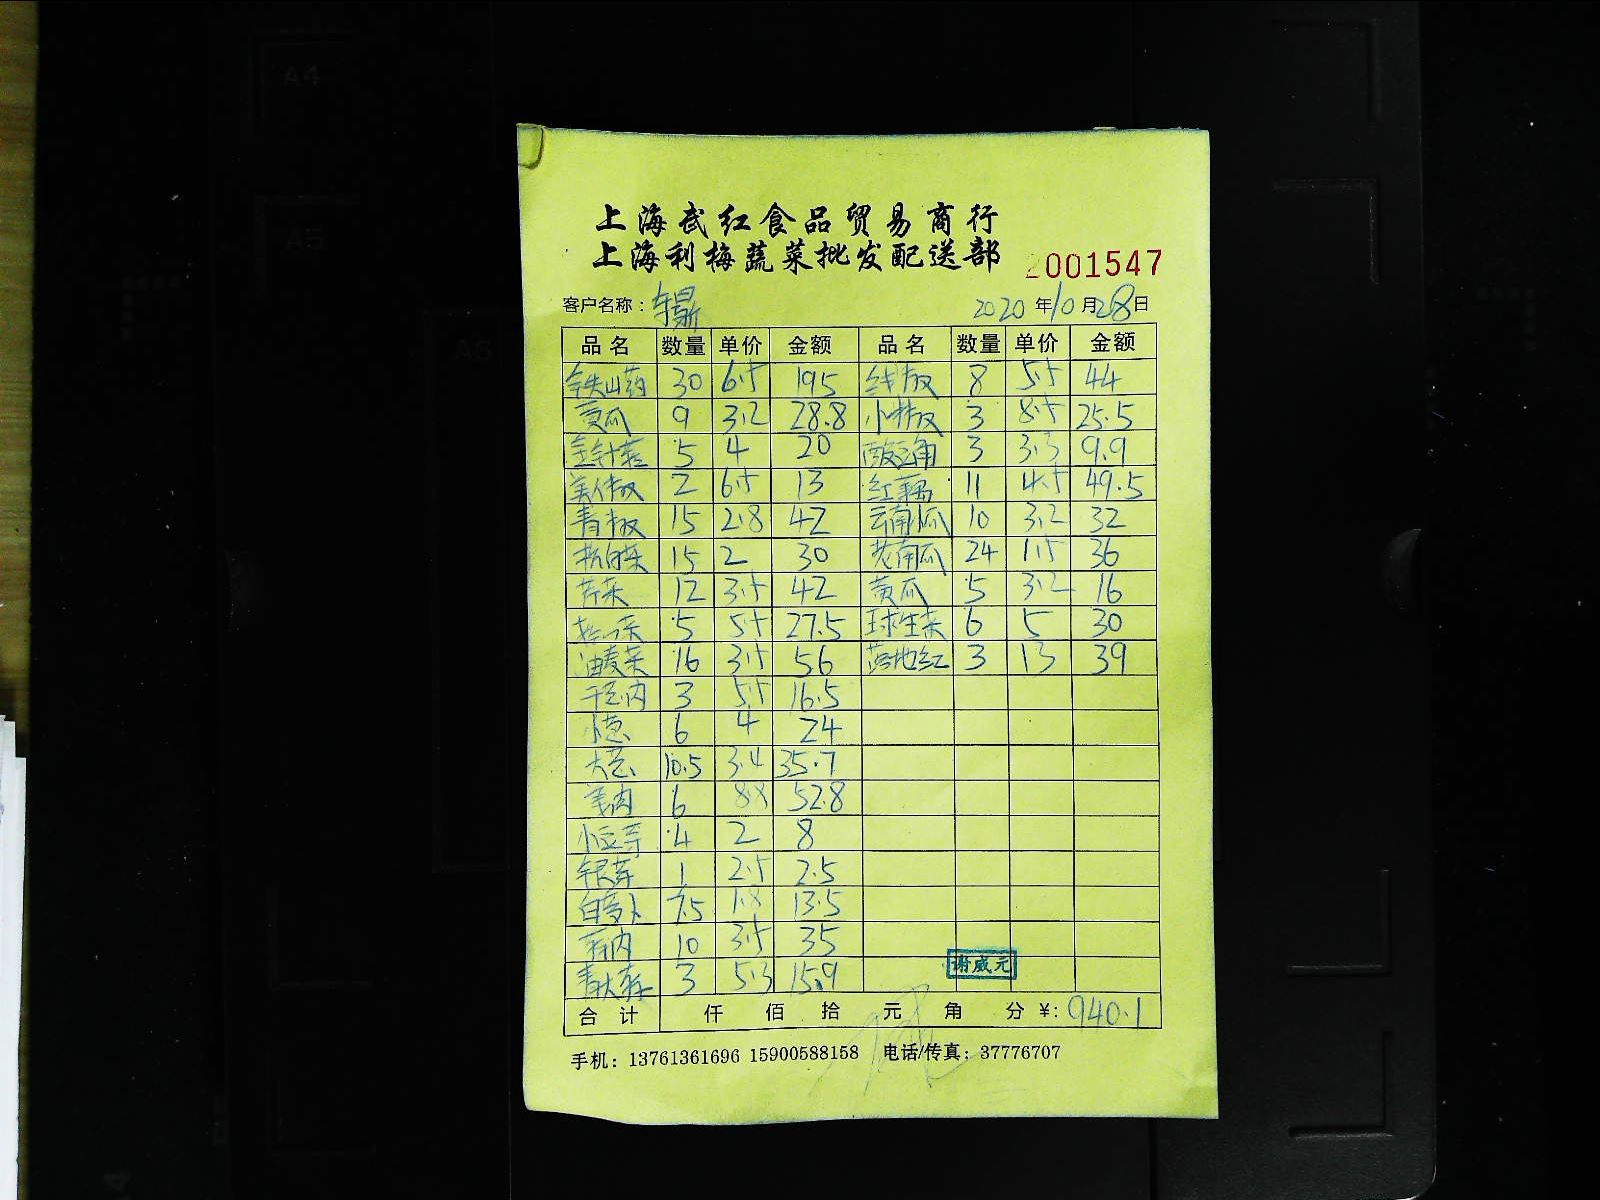 A4
A5
上海武红食品贸易商行
上海利梅蔬菜批发配送部
2001547
客户名称:
2020年10月28日
品名 数量 单价 金额 品名 数量 单价 金额
铁山药 30 6.5 195 线椒 8 5.5 44
黄瓜 9 3.2 28.8 小米椒 3 8.5 25.5
金针菇 5 4 20 酸豆角 3 3.3 9.9
美人椒 2 6.5 13 红薯 11 4.5 49.5
青椒 15 2.8 42 云南小瓜 10 3.2 32
杭白菜 15 2 30 老南瓜 24 1.5 36
芹菜 12 3.5 42 黄瓜 5 3.2 16
5 5.5 27.5 球生菜 6 5 30
油麦菜 16 3.5 56 落地红 3 13 39
3 5.5 16.5
小葱 6 4 24
大葱 10.5 3.4 35.7
姜肉 6 8.8 52.8
小豆芽 4 2 8
银芽 1 2.5 2.5
白萝卜 7.5 1.8 13.5
10 3.5 35
3 5.3 15.9
谢威元
合计 仟 佰 拾 元 角 分 ¥: 940.1
手机: 13761361696 15900588158 电话/传真: 37776707